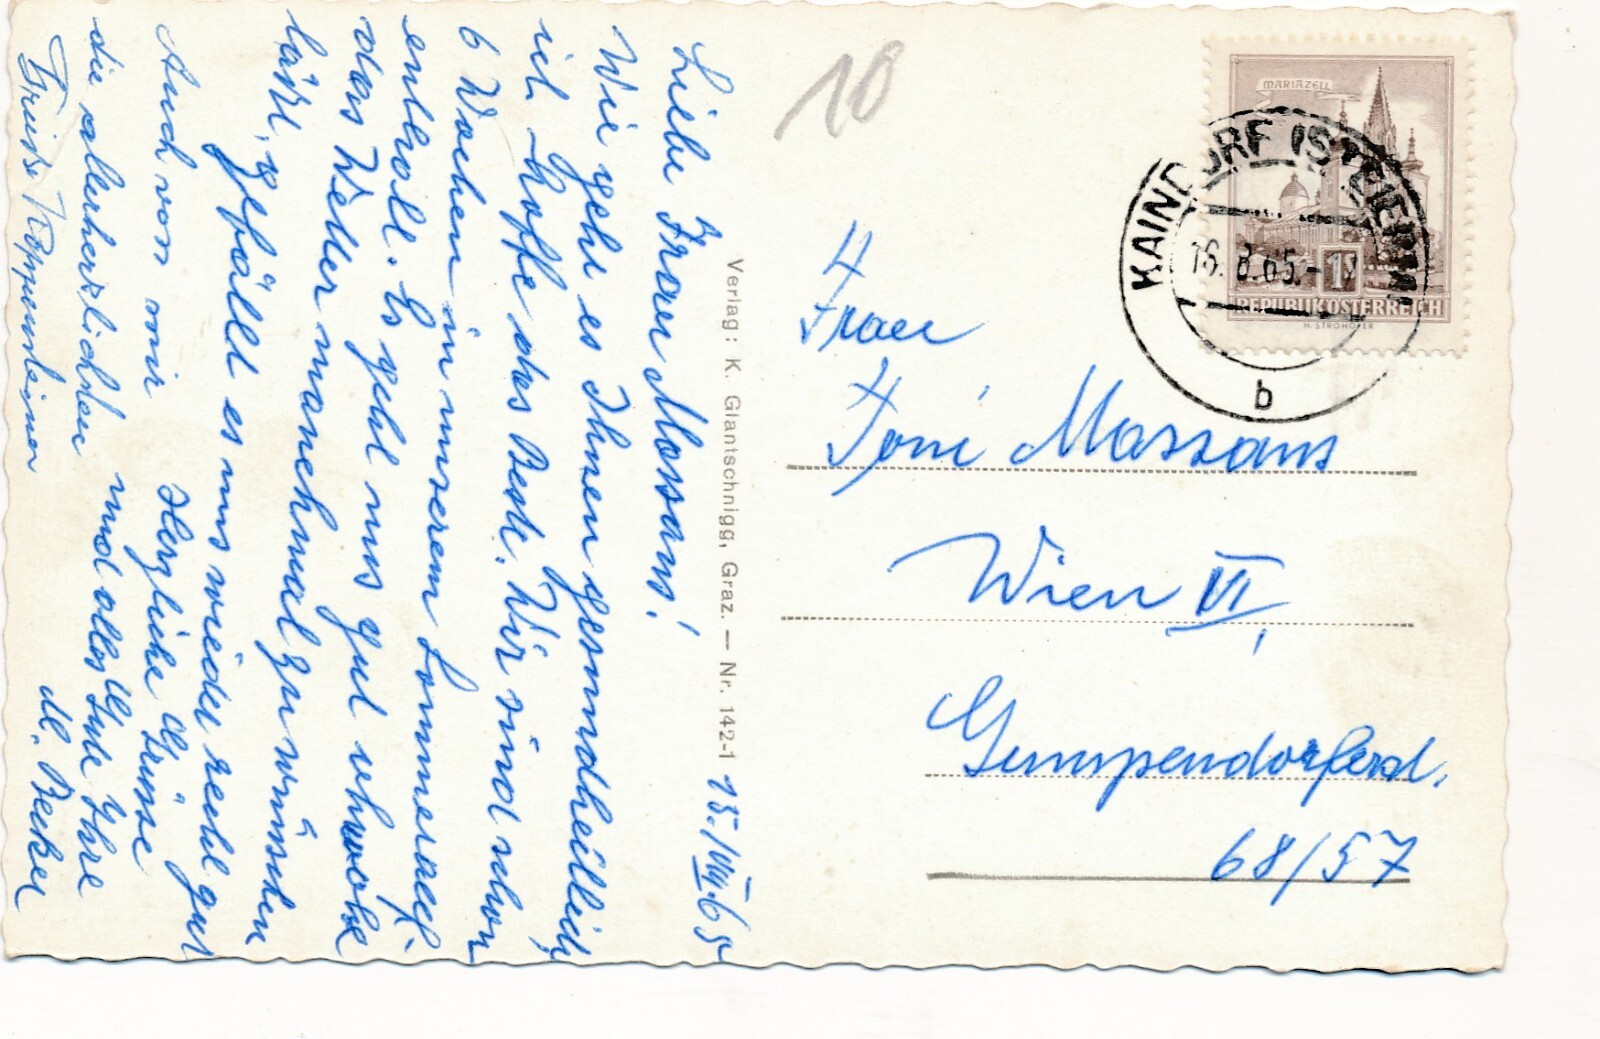 15./VIII.65
Liebe Frau Massans!
Wie geht es Ihnen gesundheitlich,
ich hoffe das Beste. Wir sind schon
6 Wochen in unserem Sommeraufent-
enthalt. Es geht uns gut
das Wetter manchmal zu wünschen
läßt, gefällt es uns wieder recht gut
Herzliche Grüsse
Auch von mir
die allerherzlichsten
und alles Gute Ihre
Grüße
M. Becker
Verlag: K. Glantschnigg, Graz. — Nr. 142-1
10
MARIAZELL
KAINDORF (STEIERM.)
16. 8. 65. -
1S
REPUBLIK ÖSTERREICH
H. STROHOFER
b
Frau
Toni Massans
Wien VI,
Gumpendorferstr.
68/57